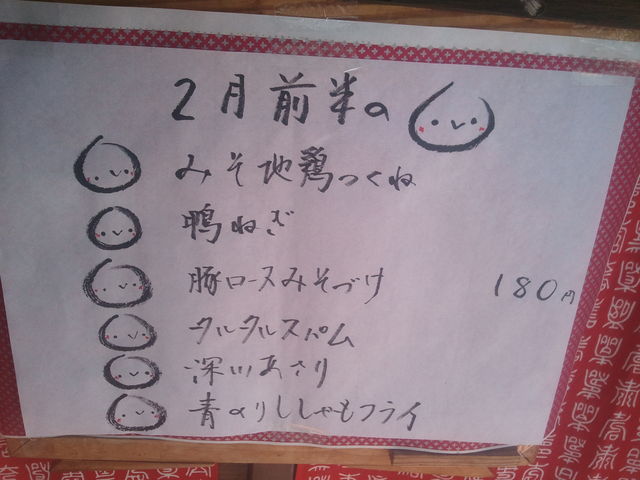 2月前半の
みそ地鶏つくね
鴨ねぎ
豚ロースみそづけ 180円
タルタルスパム
深川あさり
青のりししゃもフライ